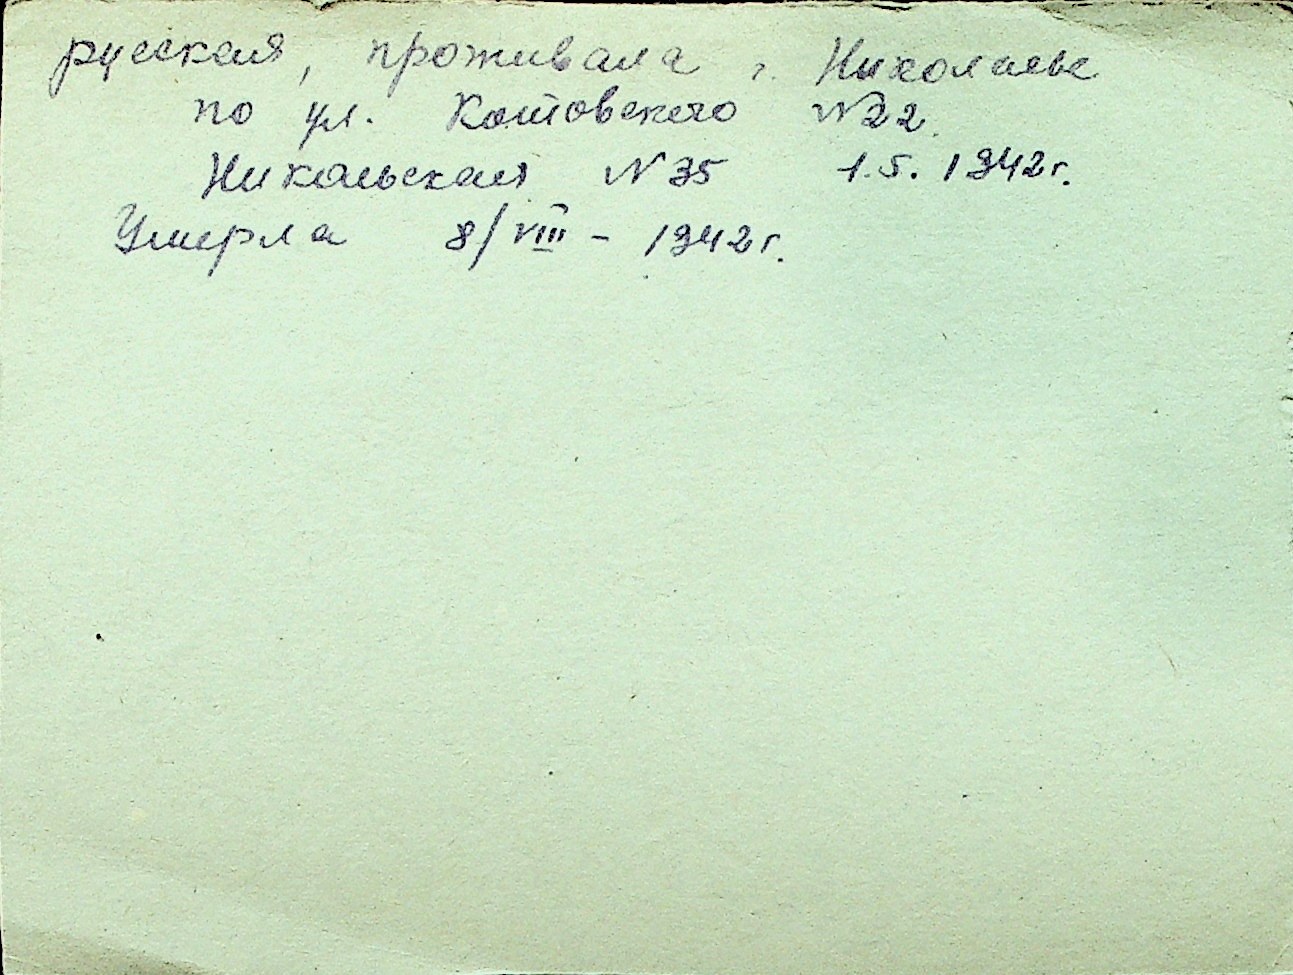 русская, проживала г. Николаеве
по ул. Котовского №22
Никольская №35 1.5.1942г.
Умерла 8/VIII - 1942г.